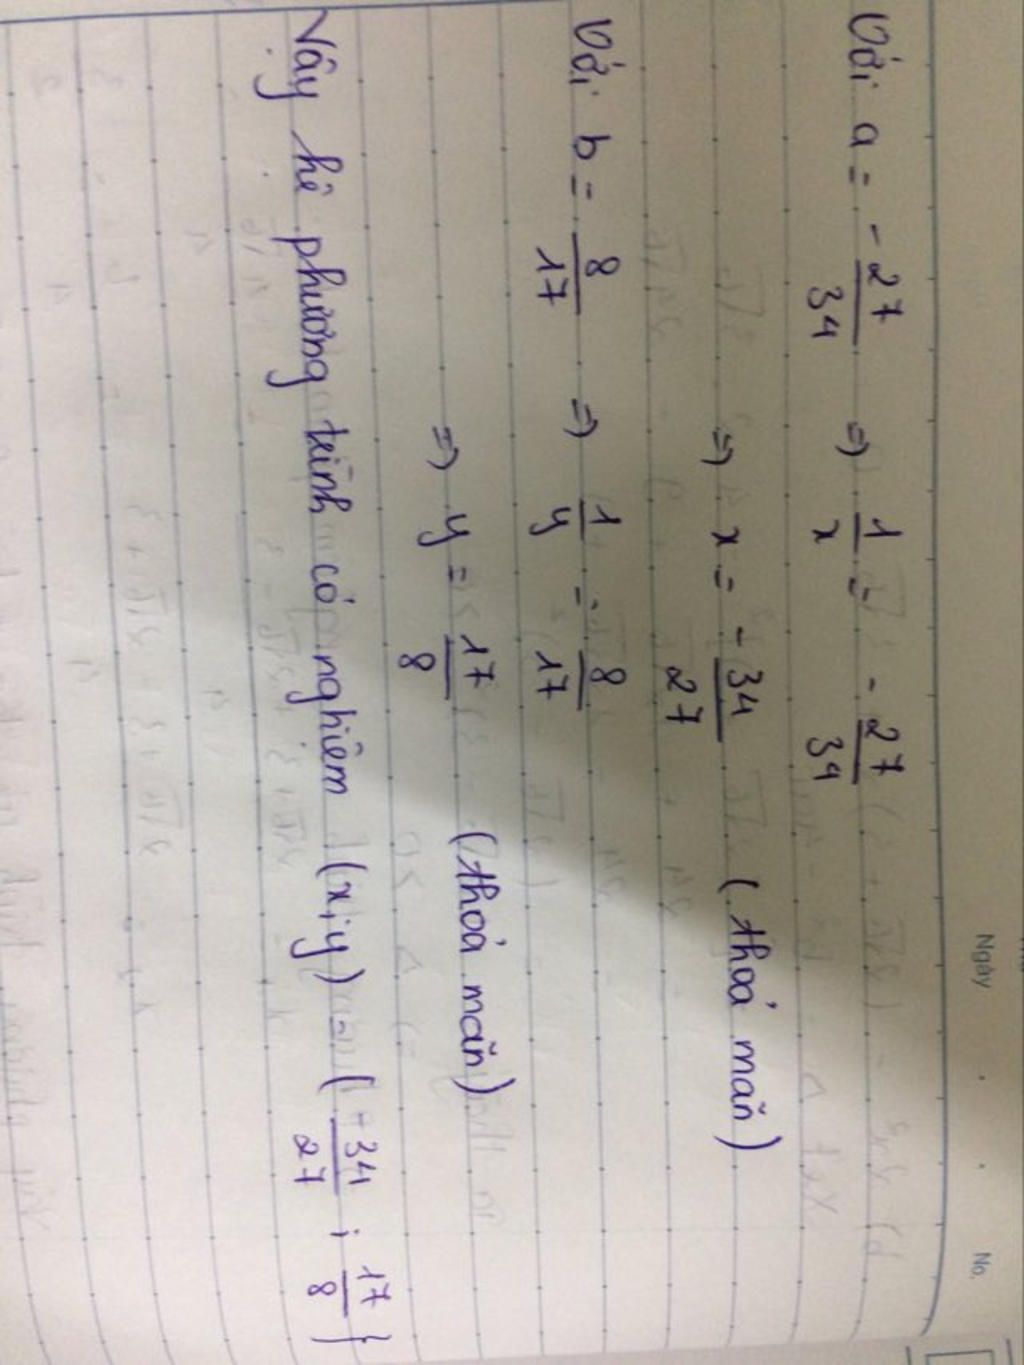 Ngày . . No.
Với a = -27/34 => 1/x = -27/34
=> x = -34/27 (thoả mãn)
Với b = 8/17 => 1/y = 8/17
=> y = 17/8 (thoả mãn)
Vậy hệ phương trình có nghiệm (x;y) = (-34/27 ; 17/8)